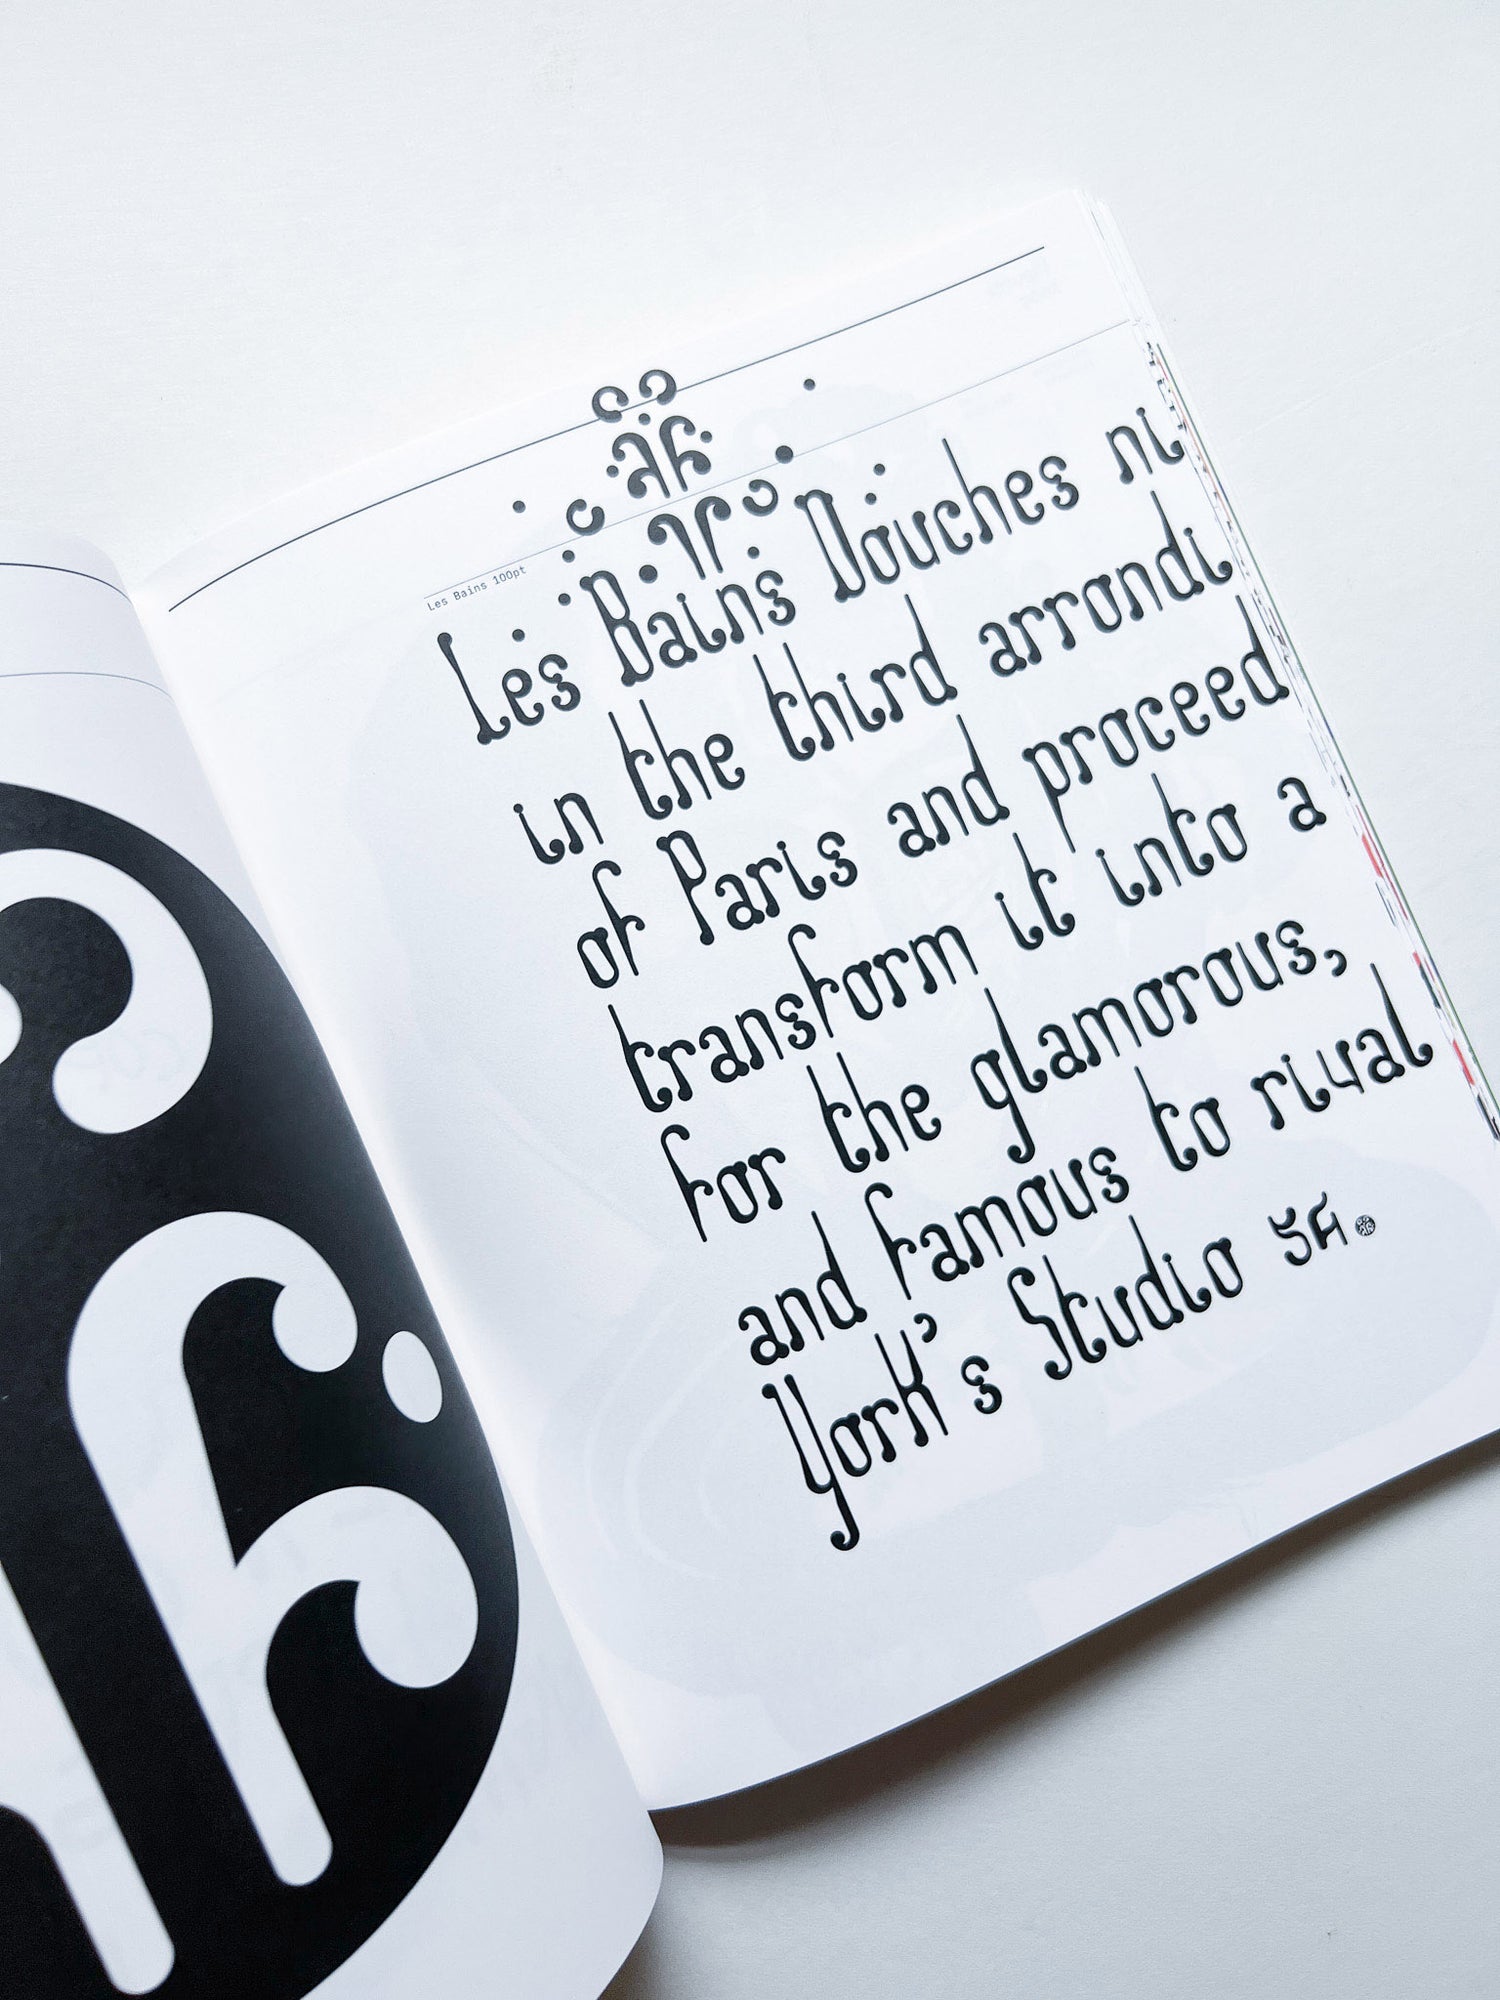 Les Bains 100pt
Les Bains Douches ni
in the third arrondi
of Paris and proceed
transform it into a
for the glamorous,
and famous to rival
York's Studio 54.